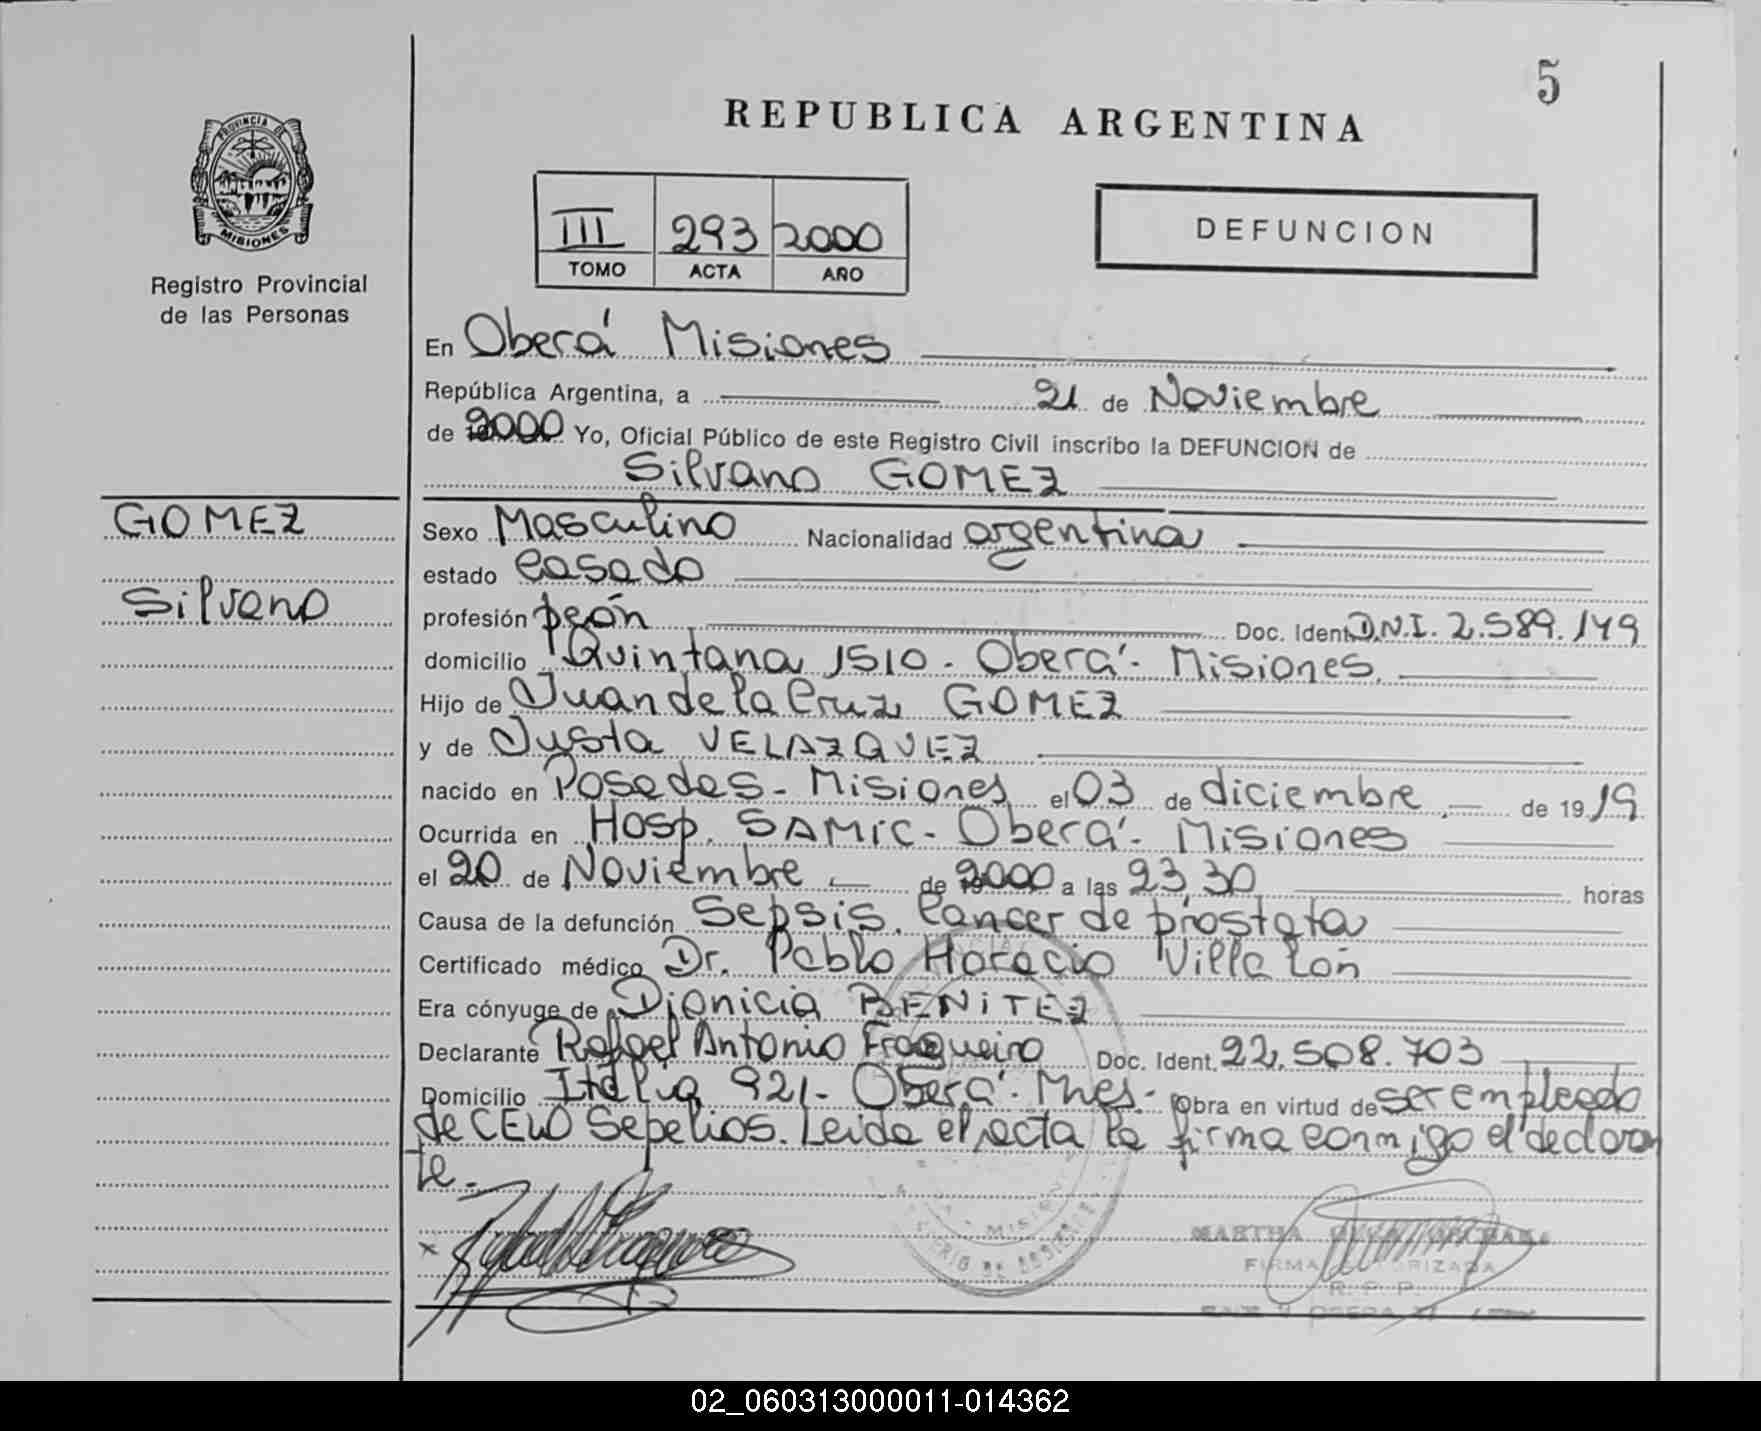 5
REPUBLICA ARGENTINA
PROVINCIA DE
MISIONES
Registro Provincial
de las Personas
III 293 2000
TOMO ACTA AÑO
DEFUNCION
En Oberá Misiones
República Argentina, a 21 de Noviembre
de 2000 Yo, Oficial Público de este Registro Civil inscribo la DEFUNCION de
Silvano GOMEZ
GOMEZ
Silvano
Sexo Masculino Nacionalidad argentina
estado Casado
profesión peón Doc. Ident. D.N.I. 2.589.149
domicilio Quintana 1510 - Oberá - Misiones.
Hijo de Juan de la Cruz GOMEZ
y de Justa VELAZQUEZ
nacido en Posadas - Misiones el 03 de diciembre de 1919
Ocurrida en Hosp. SAMIC - Oberá - Misiones
el 20 de Noviembre de 2000 a las 23,30 horas
Causa de la defunción Sepsis. Cancer de próstata
Certificado médico Dr. Pablo Horacio Villalón
Era cónyuge de Dionicia BENITEZ
Declarante Rafael Antonio Fraqueiro Doc. Ident. 22.508.703
Domicilio Italia 921 - Oberá - Mnes - Obra en virtud de ser empleado
de CELO Sepelios. Leida el acta la firma conmigo el declaran
te.
MARTHA
FIRMA AUTORIZADA
R. P. P.
02_060313000011-014362